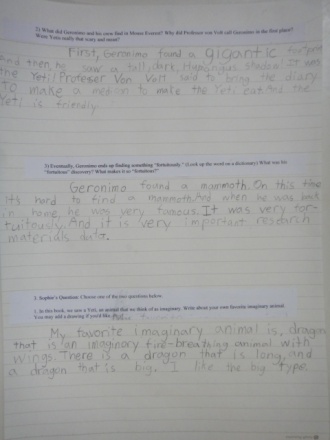 2) What did Geronimo and his crew find in Mount Everest? Why did Professor von Volt call Geronimo in the first place?
Were Yetis really that scary and mean?
First, Geronimo found a gigantic footprint
and then he saw a tall, dark, shadow! It was
the Yeti! Professor Von Volt said to bring the diary
To make a to make the Yeti eat. And the
Yeti is friendly.
3) Eventually, Geronimo ends up finding something "fortuitously." (Look up the word on a dictionary) What was his
"fortuitous" discovery? What makes it so "fortuitous?"
Geronimo found a mammoth. On this time
it's hard to find a mammoth. And when he was back
in home, he was very famous. It was very for-
tuitously. And it is very important research
materials data.
3. Sophie's Question: Choose one of the two questions below.
1. In this book, we saw a Yeti, an animal that we think of as imaginary. Write about your own favorite imaginary animal.
You may add a drawing if you'd like.
My favorite imaginary animal is, dragon
that is an imaginary fire-breathing animal with
wings. There is a dragon that is long, and
a dragon that is big. I like the big type.